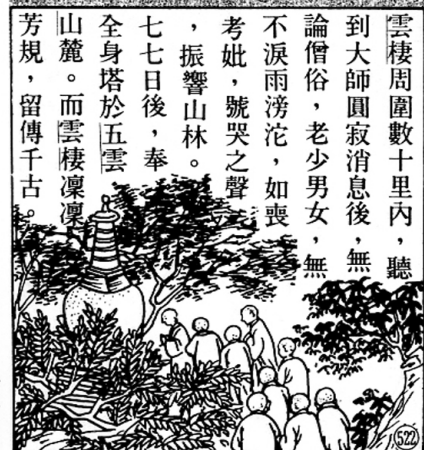 雲棲周圍數十里內，聽
到大師圓寂消息後，無
論僧俗，老少男女，無
不淚雨滂沱，如喪
考妣，號哭之聲
，振響山林。
七七日後，奉
全身塔於五雲
山麓。而雲棲凜凜
芳規，留傳千古。
522